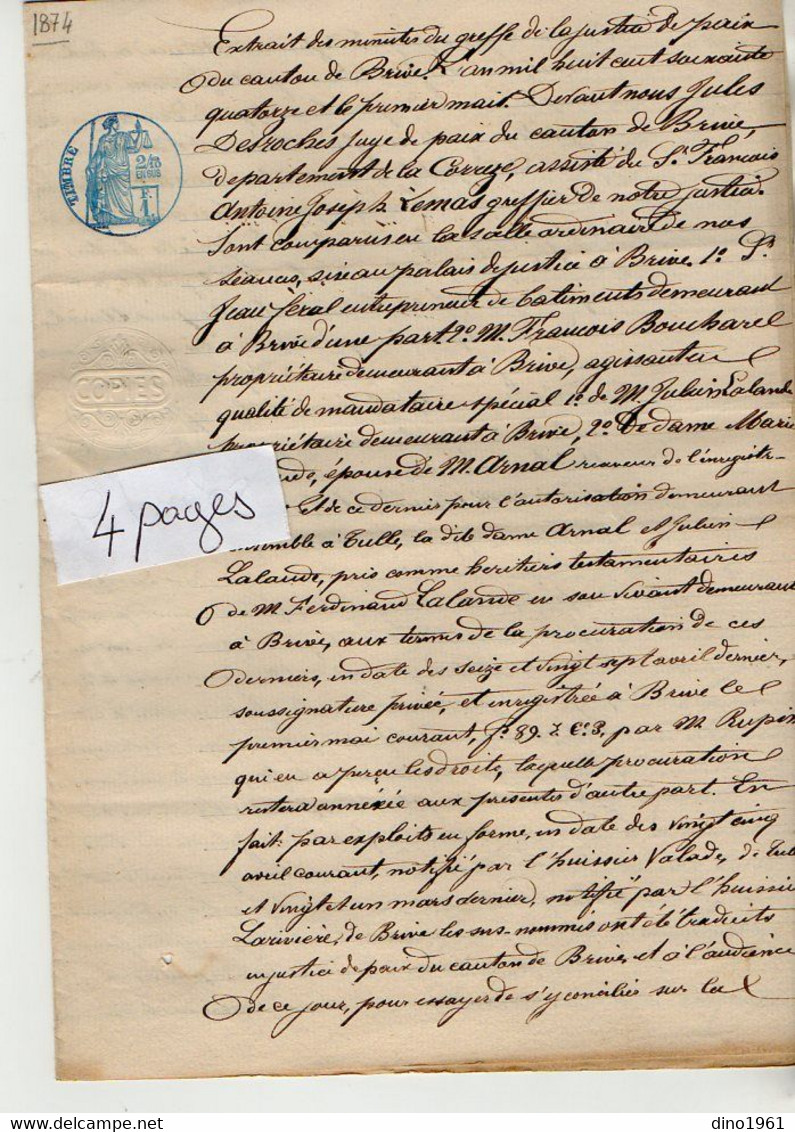 1874
TIMBRE
2/10
EN SUS
F.
1
COPIES
4 pages
Extrait des minutes du greffe de la justice de paix
du canton de Brive. L'an mil huit cent soixante
quatorze et le premier mai. Devant nous Jules
Desroches juge de paix du canton de Brive,
departement de la Correze, assisté du Sr. François
Antoine Joseph Lemas greffier de notre justice.
Sont comparus en la salle ordinaire de nos
séances, sise au palais de justice à Brive. 1º Sr.
Jean Seral entrepreneur de batiments demeurant
à Brive d'une part. 2º M. François Boucharel
propriétaire demeurant à Brive, agissant en
qualité de mandataire spécial 1º de M. Julien Lalande
propriétaire demeurant à Brive, 2º De dame Marie
épouse de M. Arnal receveur de l'énregistr-
Et de ce dernier pour l'autorisation demeurant
ensemble à Tulle, la dite dame Arnal et Julien
Lalande, pris comme heritiers testamentaires
de M. Ferdinand Lalande en son vivant demeurant
à Brive, aux termes de la procuration de ces
derniers, en date des seize et vingt sept avril dernier,
sous signature privée, et enregistrée à Brive le
premier mai courant, fº 89. par M. Rupin
qui en a perçu les droits, laquelle procuration
restera annéxée aux présentes d'autre part. En
fait: par exploits en forme, en date des vingt cinq
avril courant, notifié par l'huissier Valade, de Tulle
et vingt et un mars dernier, notifié par l'huissier
Larivière, de Brive les sus-nommés ont été traduits
en justice de paix du canton de Brive, et à l'audience
de ce jour, pour essayer de s'y concilier sur la
dino1961